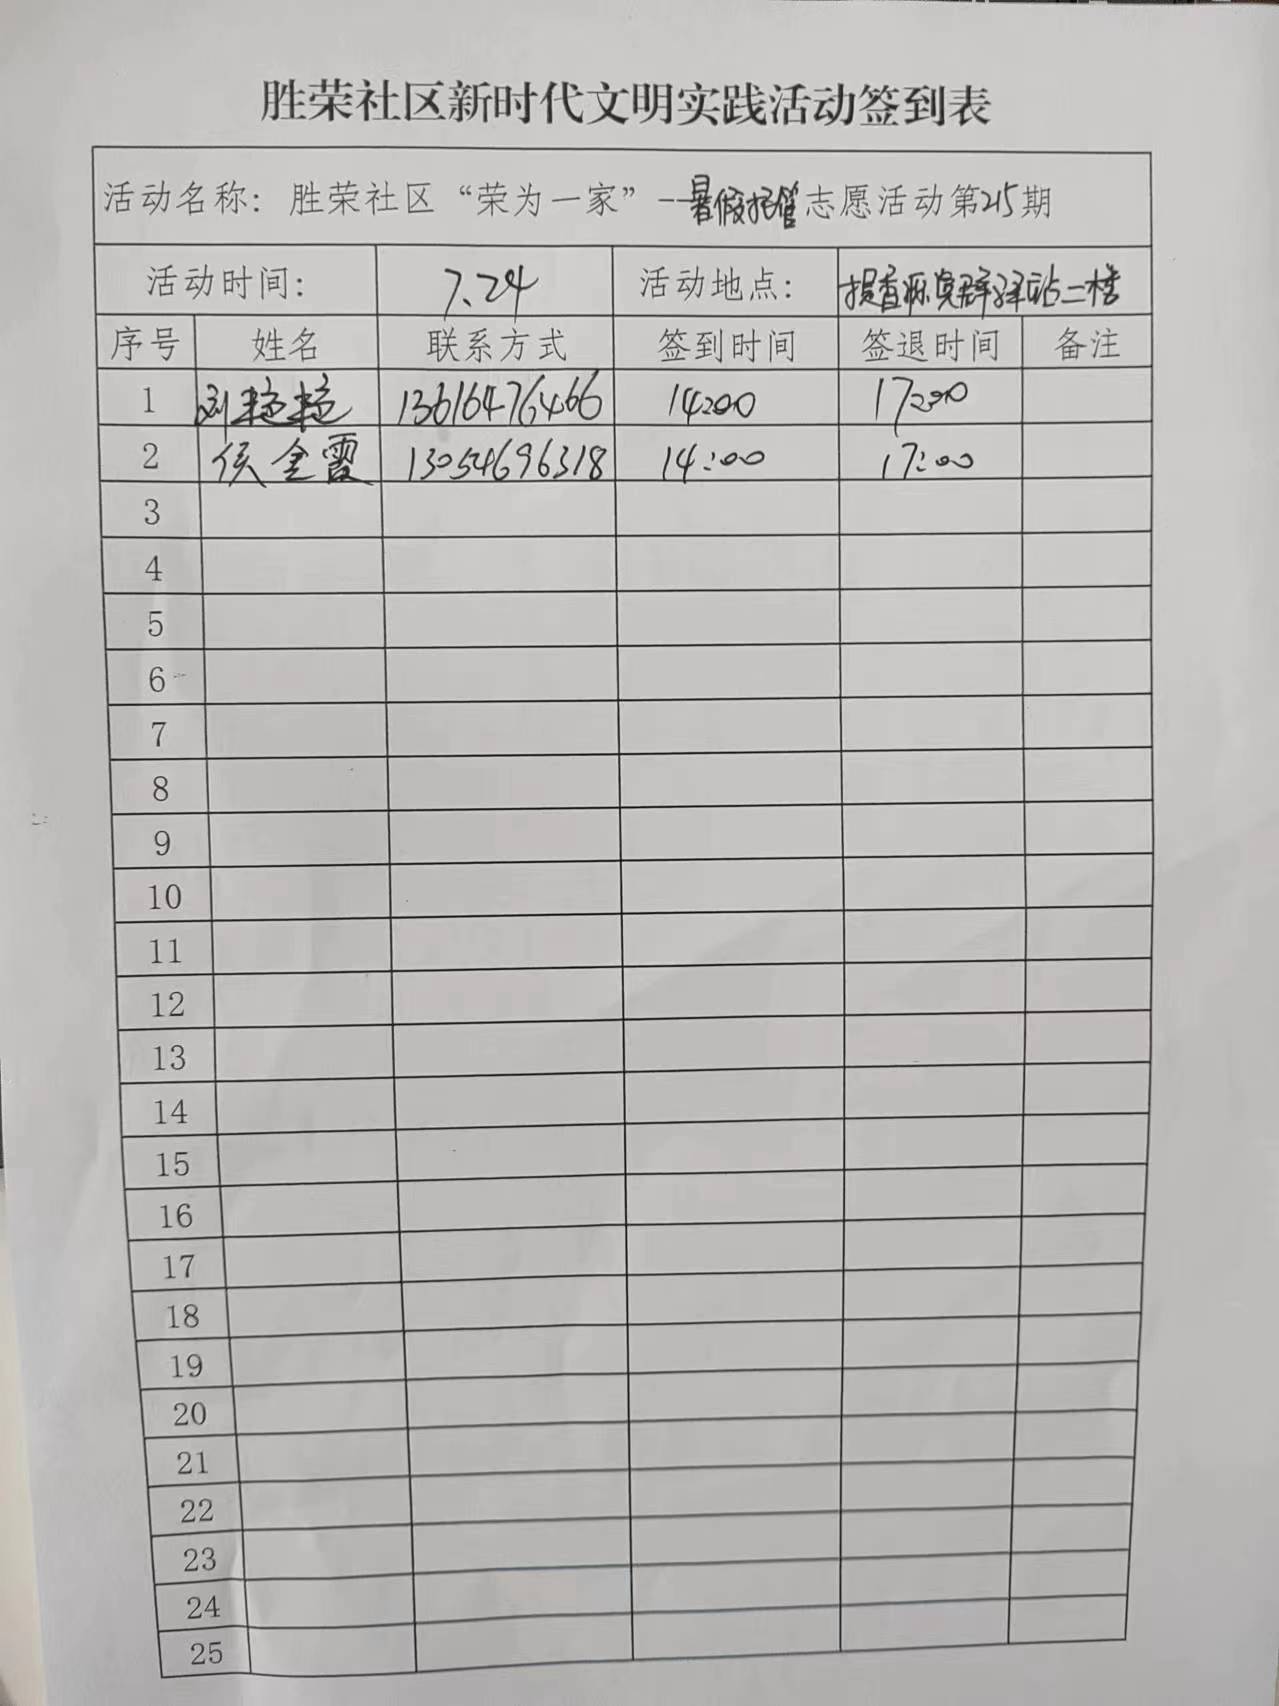 胜荣社区新时代文明实践活动签到表
活动名称：胜荣社区“荣为一家”--暑假托管志愿活动第215期
活动时间： 7.24 活动地点： 党群驿站二楼
序号 姓名 联系方式 签到时间 签退时间 备注
1 刘 13616476466 14:00 17:00
2 侯金霞 13054696318 14:00 17:00
3
4
5
6
7
8
9
10
11
12
13
14
15
16
17
18
19
20
21
22
23
24
25